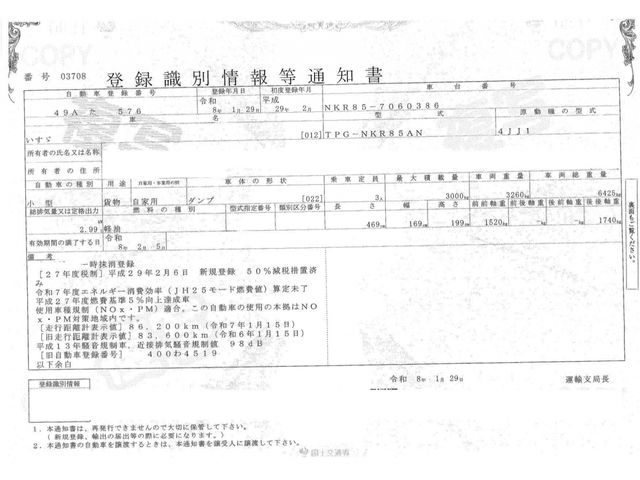 COPY
COPY
番号 03708 登録識別情報等通知書
自動車登録番号 登録年月日 初度登録年月 車台番号
49A た 576 令和 8年 1月 29日 平成 29年 2月 NKR85-7060386
車名 型式 原動機の型式
いすゞ [012] TPG-NKR85AN 4JJ1
所有者の氏名又は名称
所有者の住所
自動車の種別 用途 自家用・事業用の別 車体の形状 乗車定員 最大積載量 車両重量 車両総重量
小型 貨物 自家用 ダンプ [022] 3人 3000kg 3260kg 6425kg
総排気量又は定格出力 燃料の種別 型式指定番号 類別区分番号 長さ 幅 高さ 前前軸重 前後軸重 後前軸重 後後軸重
2.99 軽油 469cm 169cm 199cm 1520kg -kg -kg 1740kg
有効期間の満了する日 令和 8年 2月 5日
備考
一時抹消登録
[27年度税制] 平成29年2月6日 新規登録 50%減税措置済み
令和7年度エネルギー消費効率(JH25モード燃費値)算定未了
平成27年度燃費基準5%向上達成車
使用車種規制(NOx・PM)適合。この自動車の使用の本拠はNO
x・PM対策地域内です。
[走行距離計表示値] 86,200km(令和7年1月15日)
[旧走行距離計表示値] 83,600km(令和6年1月15日)
平成13年騒音規制車、近接排気騒音規制値 98dB
[旧自動車登録番号] 400わ4519
以下余白
裏面もご覧ください。
登録識別情報
令和 8年 1月 29日 運輸支局長
1.本通知書は、再発行できませんので大切に保管して下さい。
(新規登録、輸出の届出等の際に必要になります。)
2.本通知書の自動車を譲渡するときは、本通知書を譲受人に譲渡して下さい。